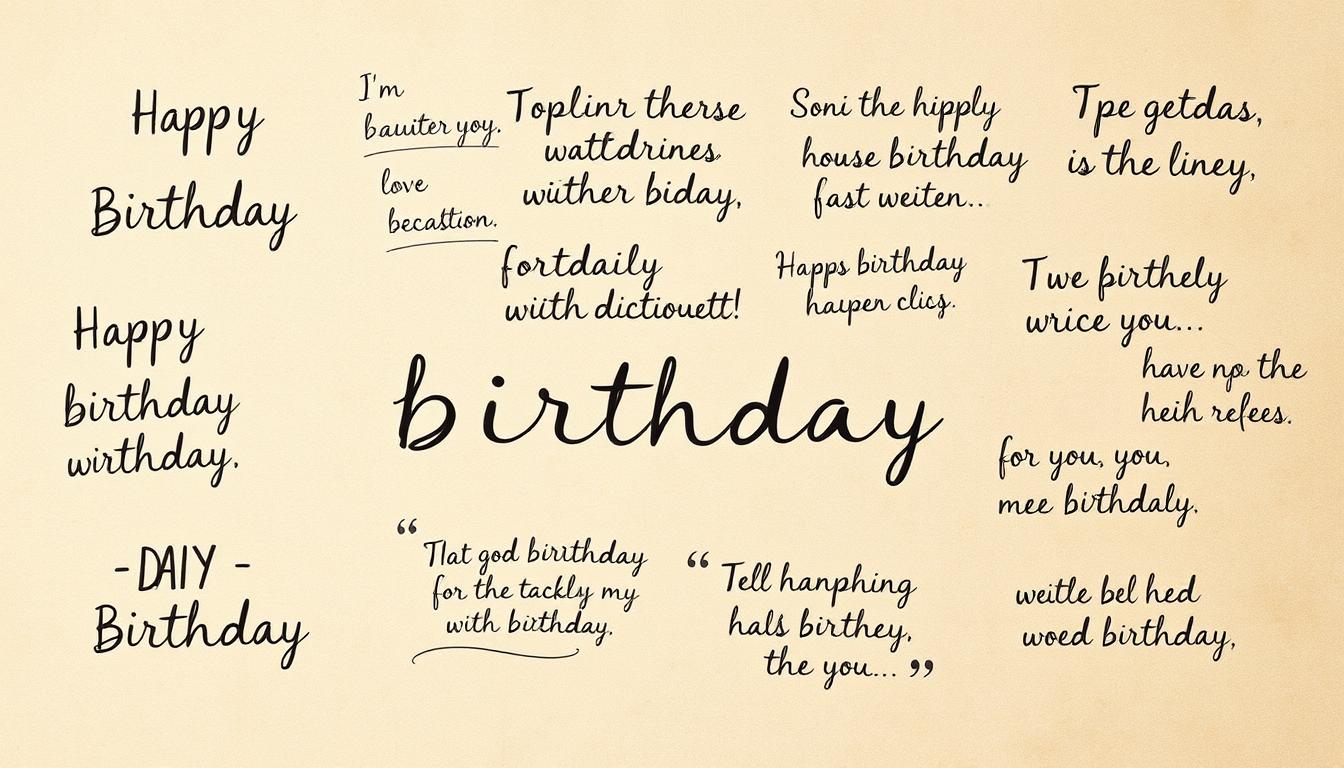 Happy
Birthday
I'm
bauiter yoy.
love
becastion.
Toplinr therse
wattdrines
wüther biday,
fortdaily
wiith dictiouett!
Soni the hipply
house birthday
fast weiten..
Happs birthday
haupen clicg.
Tpe getdas,
is the liney,
Twe birthely
wrice you...
have np the
heih refees.
for you, you,
mee birthdaly.
Happy
birthday
wirthday.
birthday
-DAIY -
Birthday
“Tlat god birithday
for the tackly my
with birthday.
“Tell hanphing
hals birthey,
the you...”
weitle bel hed
woed birthday,